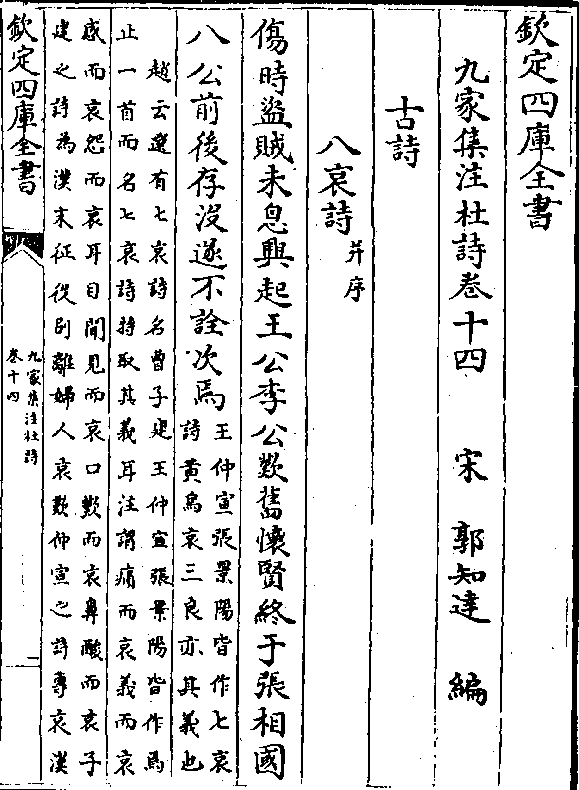 欽定四庫全書
九家集注杜詩卷十四　宋　郭知達　編
古詩
八哀詩并序
傷時盜賊未息興起王公李公歎舊懷賢終于張相國
八公前後存沒遂不詮次焉王仲宣張景陽皆作七哀
詩黃鳥哀三良亦其義也
趙云選有七哀詩名曹子建王仲宣張景陽皆作焉
止一首而名七哀詩特取其義耳注謂痛而哀義而哀
感而哀怨而哀耳目聞見而哀口歎而哀鼻酸而哀子
建之詩為漢末征役別離婦人哀歎仲宣之詩專哀漢
欽定四庫全書
九家集注杜詩
卷十四
一